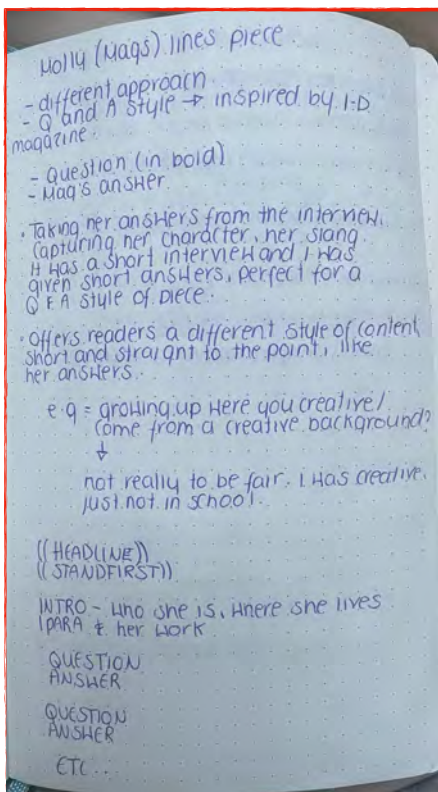 Molly (Mags) lines piece.
- different approach
- Q and A style → inspired by I-D
magazine.
- Question (in bold)
- Mag's answer
• Taking her answers from the interview.
Capturing her character, her slang.
It was a short interview and I was
given short answers, perfect for a
Q & A style of piece.
• Offers readers a different style of content,
short and straight to the point, like
her answers.
e.g = growing up were you creative/
come from a creative background?
↓
not really to be fair. I was creative,
just not in school.
((HEADLINE))
((STANDFIRST))
INTRO - who she is, where she lives
1 PARA & her work
QUESTION
ANSWER
QUESTION
ANSWER
ETC...